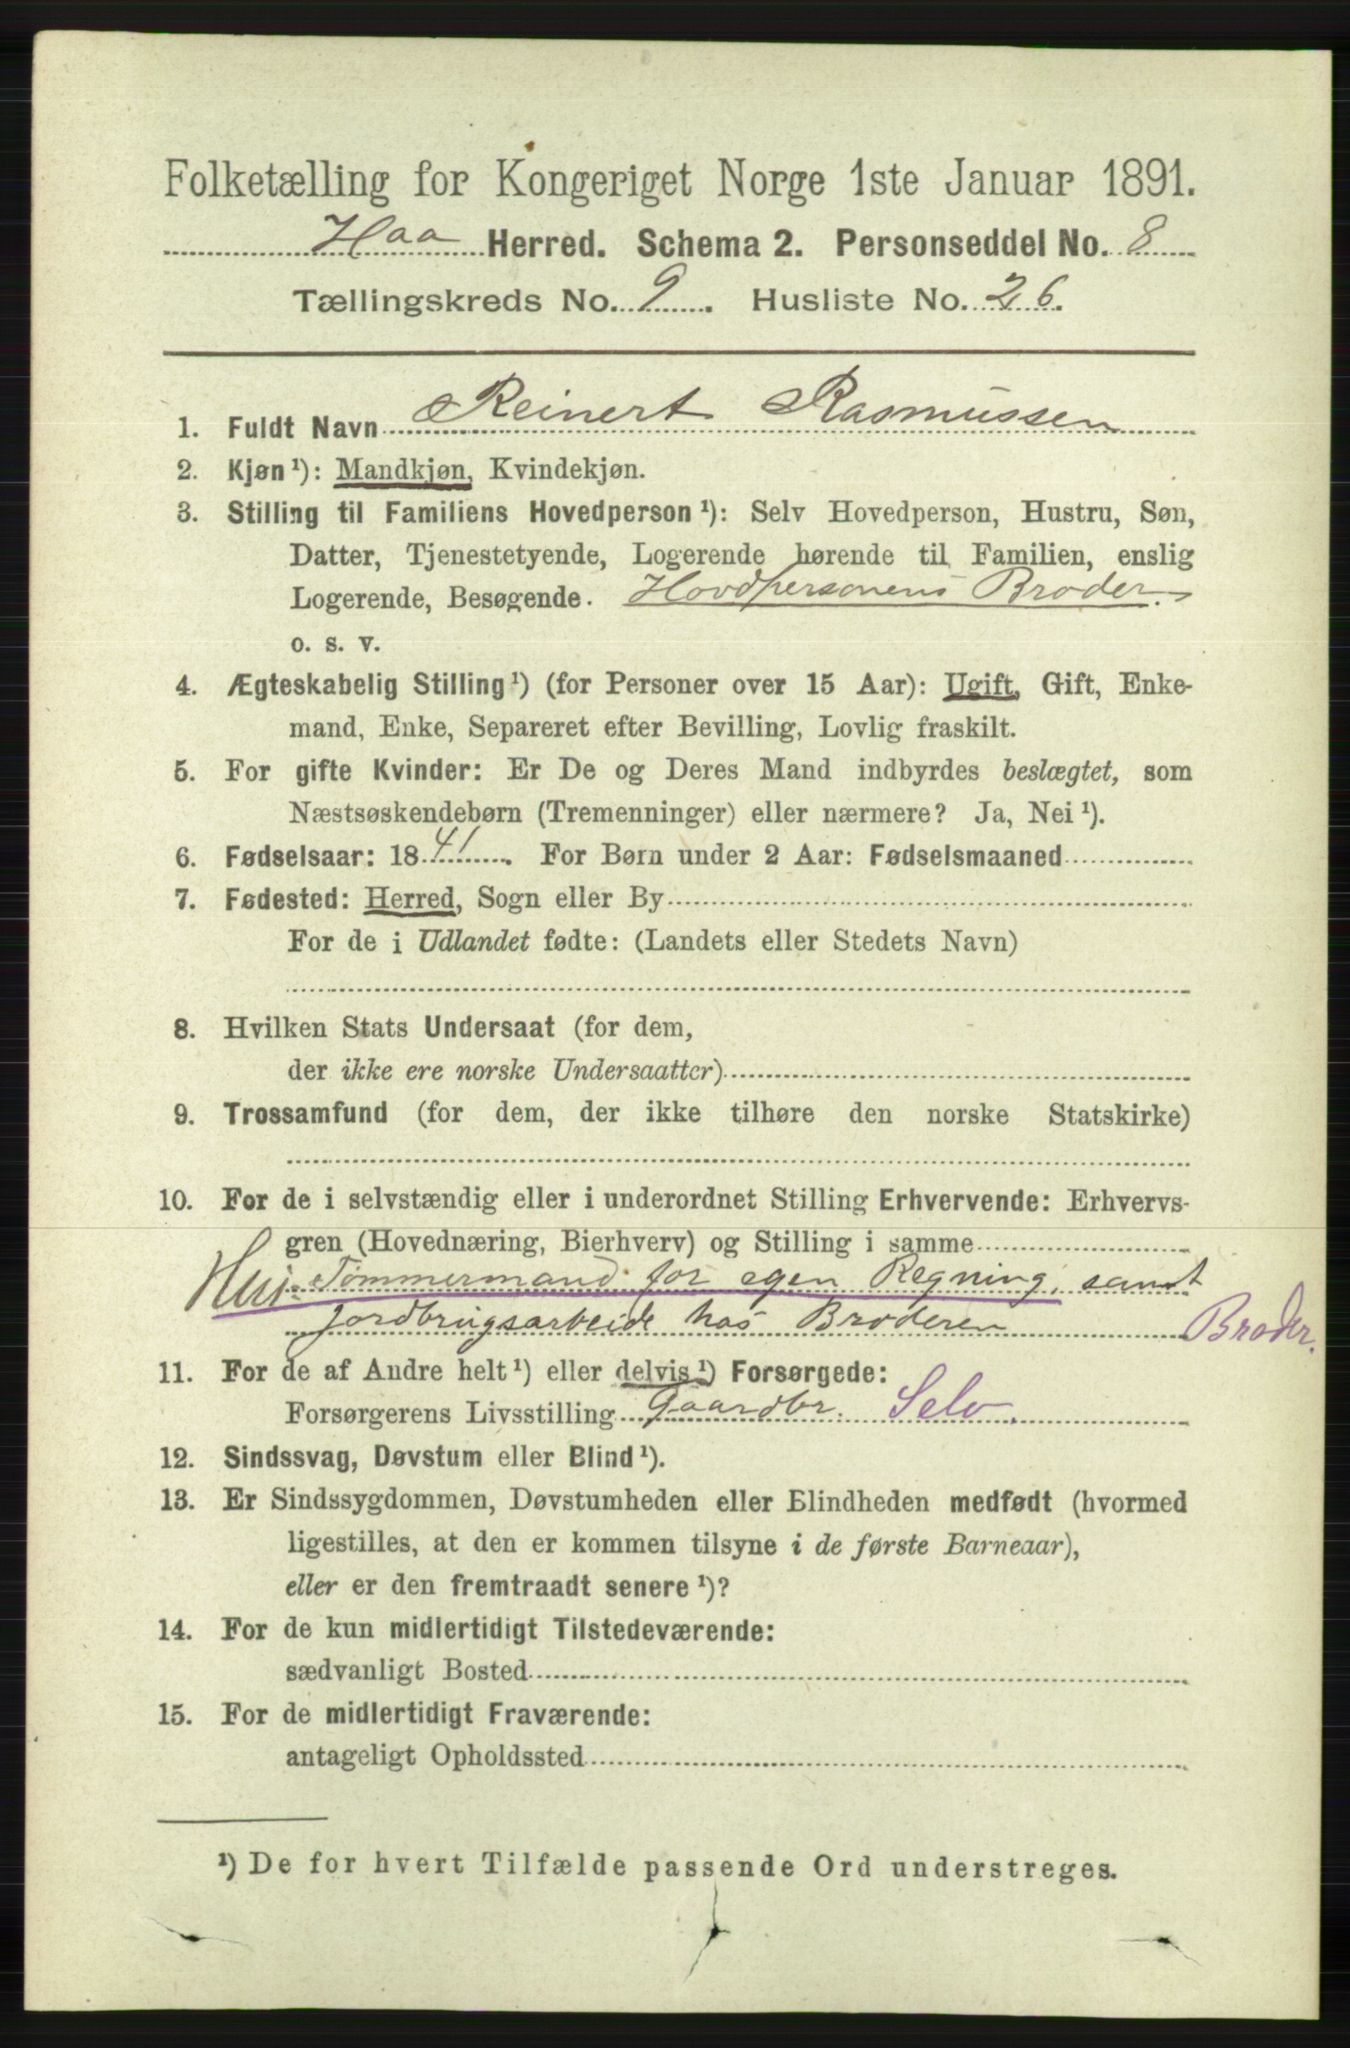 Folketælling for Kongeriget Norge 1ste Januar 1891.
Haa Herred. Schema 2. Personseddel No. 8
Tællingskreds No. 9. Husliste No. 26.
1. Fuldt Navn Reinert Rasmussen
2. Kjøn ¹): Mandkjøn, Kvindekjøn.
3. Stilling til Familiens Hovedperson ¹): Selv Hovedperson, Hustru, Søn,
Datter, Tjenestetyende, Logerende hørende til Familien, enslig
Logerende, Besøgende. Hovdpersonens Broder.
o. s. v.
4. Ægteskabelig Stilling ¹) (for Personer over 15 Aar): Ugift, Gift, Enke-
mand, Enke, Separeret efter Bevilling, Lovlig fraskilt.
5. For gifte Kvinder: Er De og Deres Mand indbyrdes beslægtet, som
Næstsøskendebørn (Tremenninger) eller nærmere? Ja, Nei ¹).
6. Fødselsaar: 1841. For Børn under 2 Aar: Fødselsmaaned
7. Fødested: Herred, Sogn eller By
For de i Udlandet fødte: (Landets eller Stedets Navn)
8. Hvilken Stats Undersaat (for dem,
der ikke ere norske Undersaatter)
9. Trossamfund (for dem, der ikke tilhøre den norske Statskirke)
10. For de i selvstændig eller i underordnet Stilling Erhvervende: Erhvervs-
gren (Hovednæring, Bierhverv) og Stilling i samme
Hus-Tømmermand for egen Regning, samt
jordbrugsarbeide hos Broderen Broder.
11. For de af Andre helt ¹) eller delvis ¹) Forsørgede:
Forsørgerens Livsstilling Gaardbr. Selv.
12. Sindssvag, Døvstum eller Blind ¹).
13. Er Sindssygdommen, Døvstumheden eller Blindheden medfødt (hvormed
ligestilles, at den er kommen tilsyne i de første Barneaar),
eller er den fremtraadt senere ¹)?
14. For de kun midlertidigt Tilstedeværende:
sædvanligt Bosted
15. For de midlertidigt Fraværende:
antageligt Opholdssted
¹) De for hvert Tilfælde passende Ord understreges.